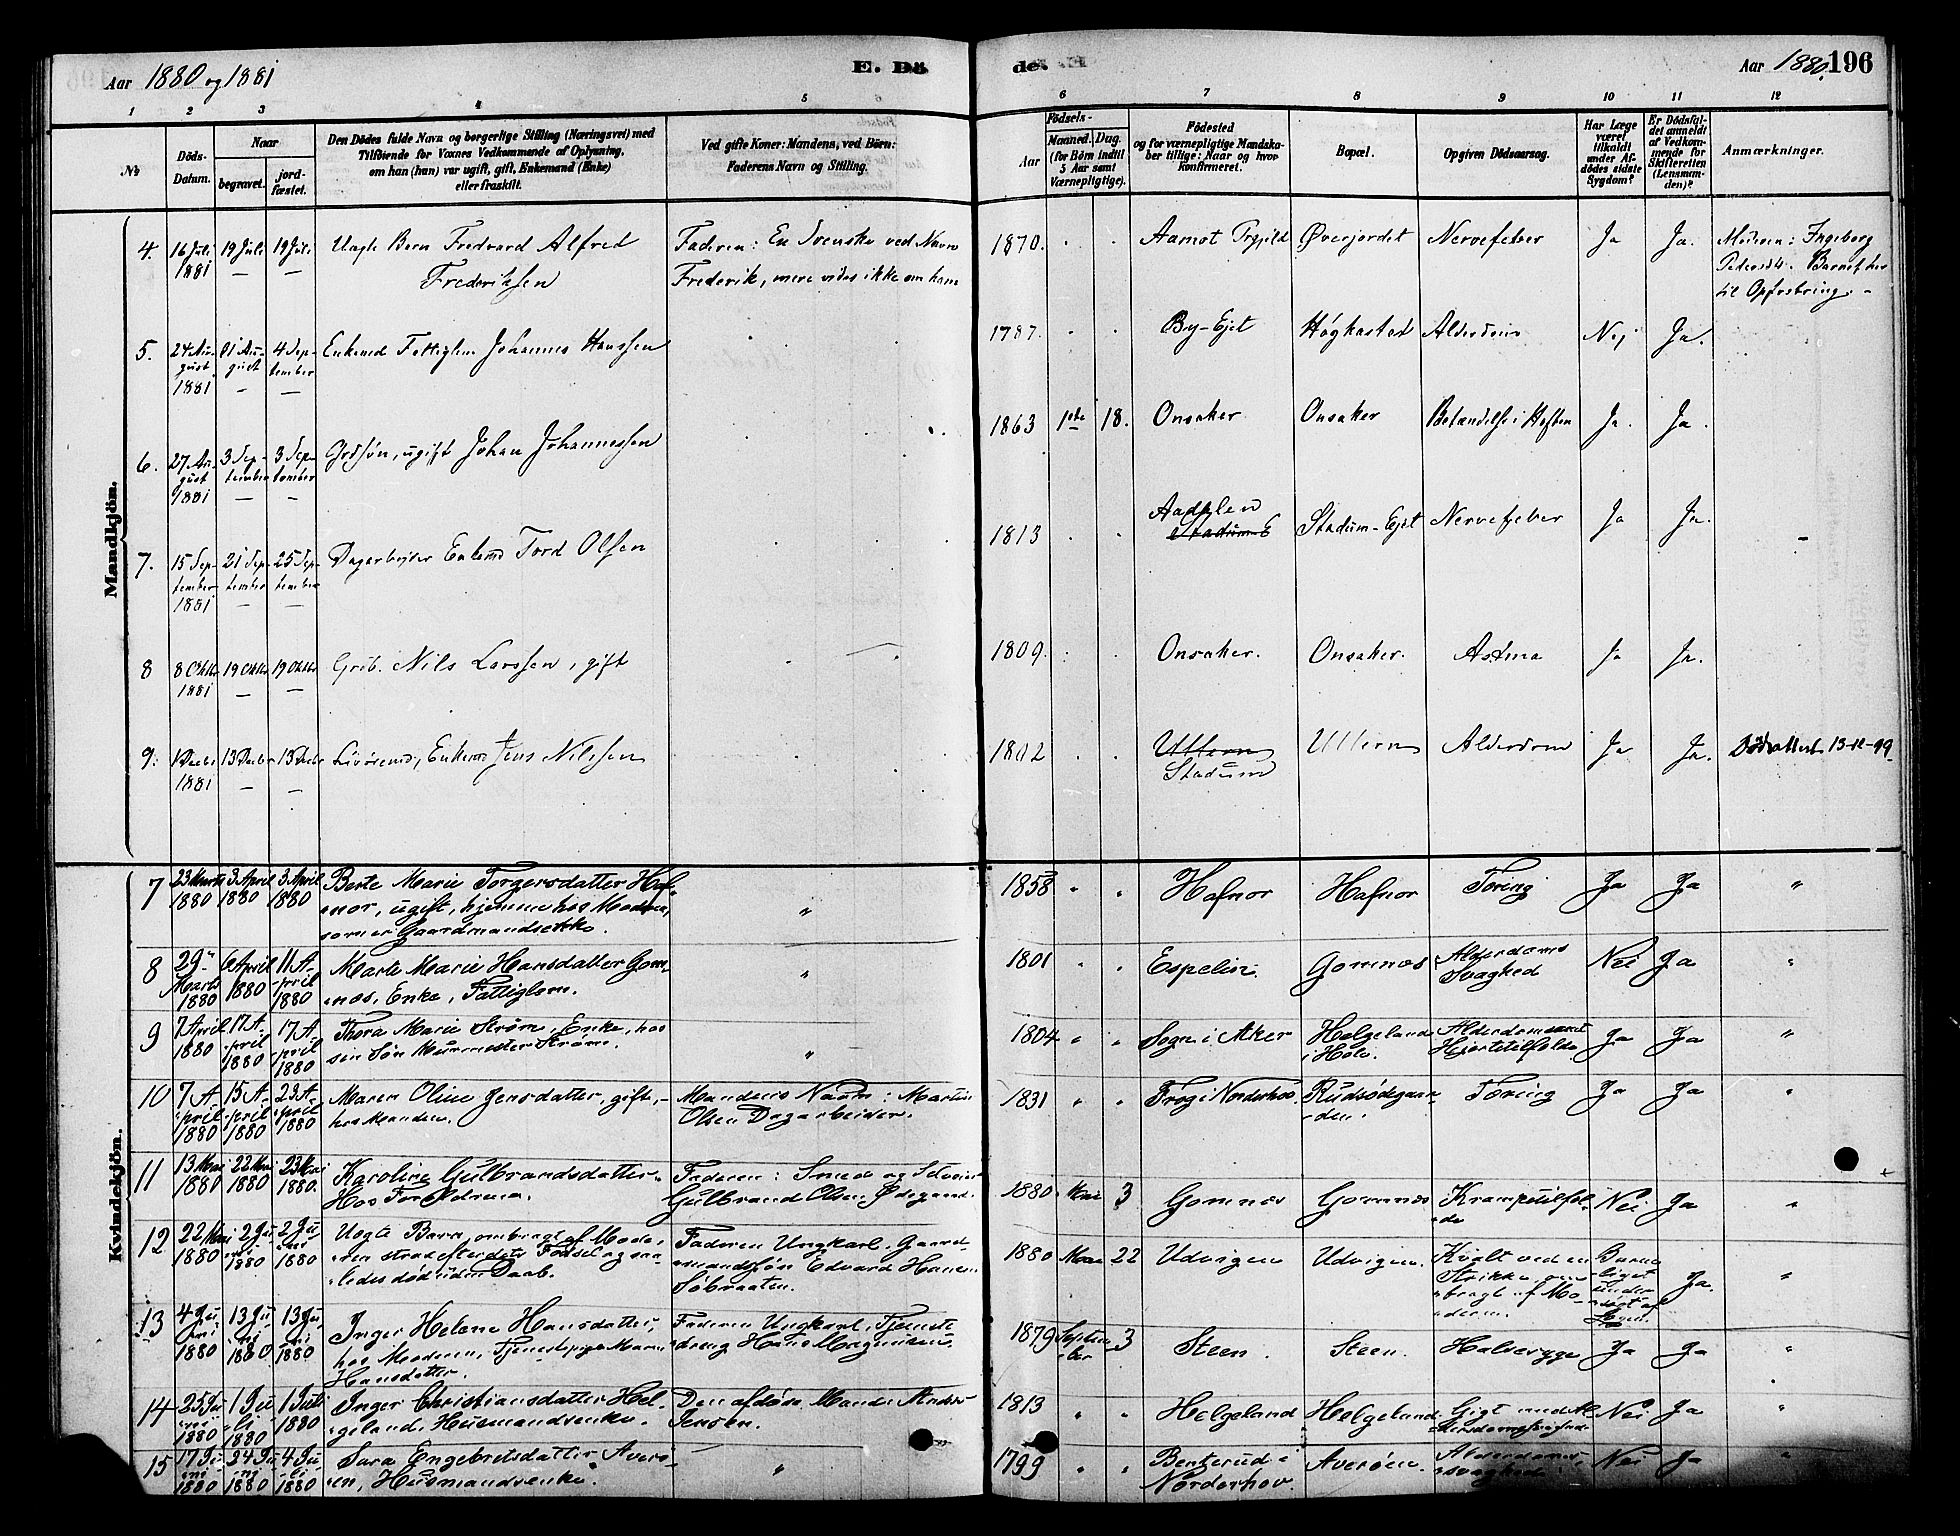 Aar 1880 og 1881
E. Dö
de.
Aar 1880. 196
1 2 3 4 5 6 7 8 9 10 11 12
№
Döds-
Datum.
Naar
begravet.
jord-
fæstet.
Den Dödes fulde Navn og borgerlige Stilling (Næringsvei) med
Tilföiende for Voxnes Vedkommende af Oplysning,
om han (hun) var ugift, gift, Enkemand (Enke)
eller fraskilt.
Ved gifte Koner: Mandens, ved Börn:
Faderens Navn og Stilling.
Födsels-
Aar
Maaned. Dag.
(for Börn indtil
5 Aar samt
Værnepligtige).
Födested
og for værnepligtige Mandska-
ber tillige: Naar og hvor
konfirmeret.
Bopæl.
Opgiven Dödsaarsag.
Har Læge
været
tilkaldt
under Af-
dödes sidste
Sygdom?
Er Dödsfal-
det anmeldt
af Vedkom-
mende for
Skifteretten
(Lensman-
den)?
Anmærkninger.
Mandkjön.
4. 16 Juli 1881 19 Juli — 19 Juli — Uægte Barn Fredvard Alfred
Frederiksen
Faderen: En Svenske ved Navn
Frederik, mere vides ikke om ham
1870. Aamot Øverjordet Nervefeber Ja Ja. Moderen: Ingeborg
Pedersdt. Barnet her
til Opfostring. -
5. 24 August 1881 31 August — 4 September — Enkemd Fattiglem Johannes Hanssen
1787. By-Ejet Høgkastad Alderdom Nej Ja.
6. 27 August 1881 3 September — 3 September — Grdsøn, ugift Johan Johannessen
1863 18. Onsaker Onsaker Betændelse i Hoften Ja. Ja.
7. 15 September 1881 21 September — 25 September — Dagarbejder Enkemd Tord Olsen
1813 Aadalen Stadum-E Stadum-Ejet Nervefeber Ja Ja. -
8 8 Oktbr 1881 19 Oktbr — 19 Oktbr — Grdb. Nils Larssen, gift
1809. Onsaker. Onsaker. Astma Ja Ja.
9. 1 Decbr 1881 13 Decbr — 13 Decbr — Livøremd, Enkemd Jens Nilssen
1802 Ultern Stadum Ultern Alderdom Ja Ja. Dødsattest 13-12-99
Kvindekjön.
7 23 Marts 1880 3 April 1880 3 April 1880 Berte Marie Torgersdatter Haf-
nor, ugift, hjemme hos Moderen,
som er Gaardmandsenke.
" 1858 " " Hafnor Hafnor Tæring Ja Ja "
8 29 Marts 1880 6 April 1880 11 April 1880 Marte Marie Hansdatter Gom-
næs, Enke, Fattiglem.
" 1801 " " Espelin. Gomnæs Alderdoms
Svaghed Nei Ja "
9 7 April 1880 17 April 1880 17 April 1880 Thora Marie Strøm, Enke, hos
sin Søn Murmester Strøm.
" 1804 " " Sogn i Aker Helgeland
i Hole. Alderdom samt
Hjertetilfælde Ja Ja "
10 7 April 1880 15 April 1880 23 April 1880 Maren Oline Jensdatter, gift,
hos Manden.
Mandens Navn: Martin
Olsen Dagarbeider.
1831 " " Frøg i Norderhov Rudsødegaar-
den. Tæring Ja Ja "
11 13 Mai 1880 22 Mai 1880 23 Mai 1880. Karoline Gulbrandsdatter
Hos Forældrene.
Faderen: Smed og Selveier
Gulbrand Olsen Ødegaard.
1880 Mai 3 Gomnæs Gomnæs Krampetilfæl-
de Nei Ja "
12 22 Mai 1880 2 Juni 1880 2 Juni 1880 Uægte Barn, ombragt af Mode-
ren strax efter dets Fødsel og saa-
ledes død uden Daab.
Faderen Ungkarl, Gaard-
mandssøn Edvard Hansen
Søbraaten.
1880 Mai 22 Udvigen Udvigen Kvalt ved en
Strikke, om-
bragt af Mo-
deren. Ja. "
13 4 Juni 1880 13 Juni 1880 13 Juni 1880 Inger Helene Hansdatter,
hos Moderen, Tjenestepige Maren
Hansdatter.
Faderen Ungkarl, Tjeneste-
dreng Hans Magnussen.
1879 September 3 Steen. Steen. Halsesyge Ja Ja "
14 25 Juni 1880 1 Juli 1880 1 Juli 1880 Inger Christiansdatter Hel-
geland, Husmandsenke.
Den afdøde Mand: Anders
Jensen.
1813 " " Helgeland Helgeland Gigt med Al-
derdomssvaghed Nei Ja "
15 17 Juni 1880 24 Juni 1880 4 Juli 1880 Sara Engebretsdatter Averø-
en, Husmandsenke.
" 1799 " " Benterud i
Norderhov. Averøen. Alderdoms-
svaghed Nei Ja "